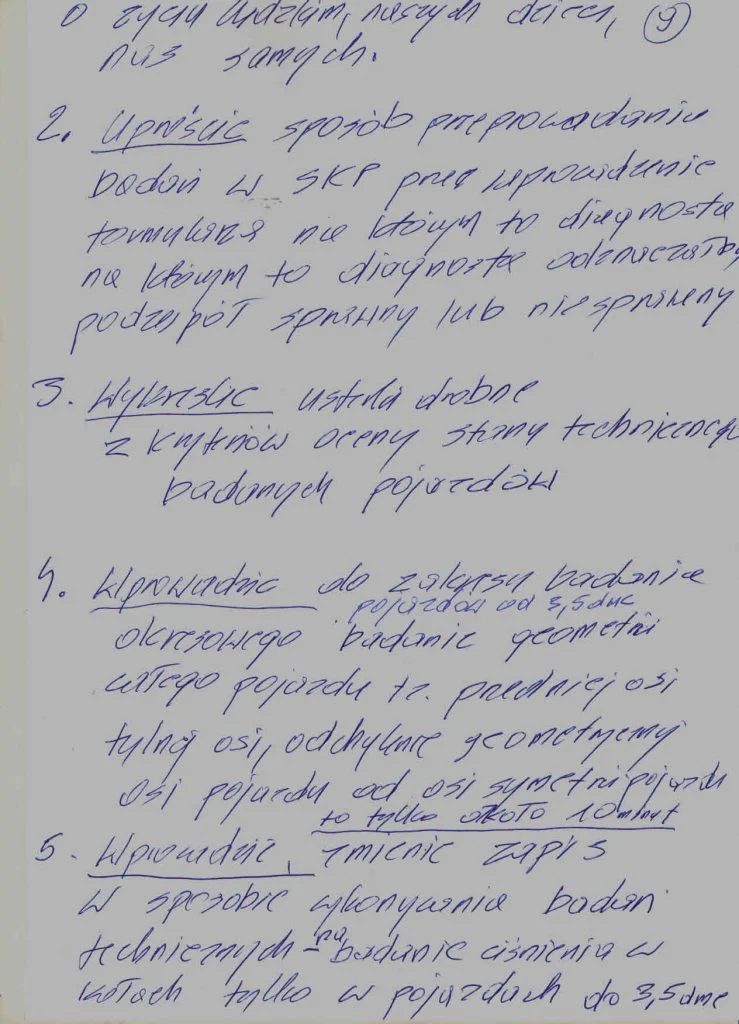 o życiu ludzkim, naszych dzieci, 9
nas samych.
2. Uprościć sposób przeprowadzania
badań w SKP przez wprowadzenie
formularza na którym to diagnosta
na którym to diagnosta odznaczałby
podzespół sprawny lub niesprawny
3. Wykreślić usterki drobne
z kryteriów oceny stanu technicznego
badanych pojazdów
4. Wprowadzić do zakresu badania
pojazdów od 3,5 dmc
okresowego badanie geometrii
całego pojazdu tz. przedniej osi
tylnej osi, odchylenie geometrycznej
osi pojazdu od osi symetrii pojazdu
to tylko około 10 minut
5. Wprowadzić, zmienić zapis
w sposobie wykonywania badań
technicznych - na badanie ciśnienia w
kołach tylko w pojazdach do 3,5 dmc